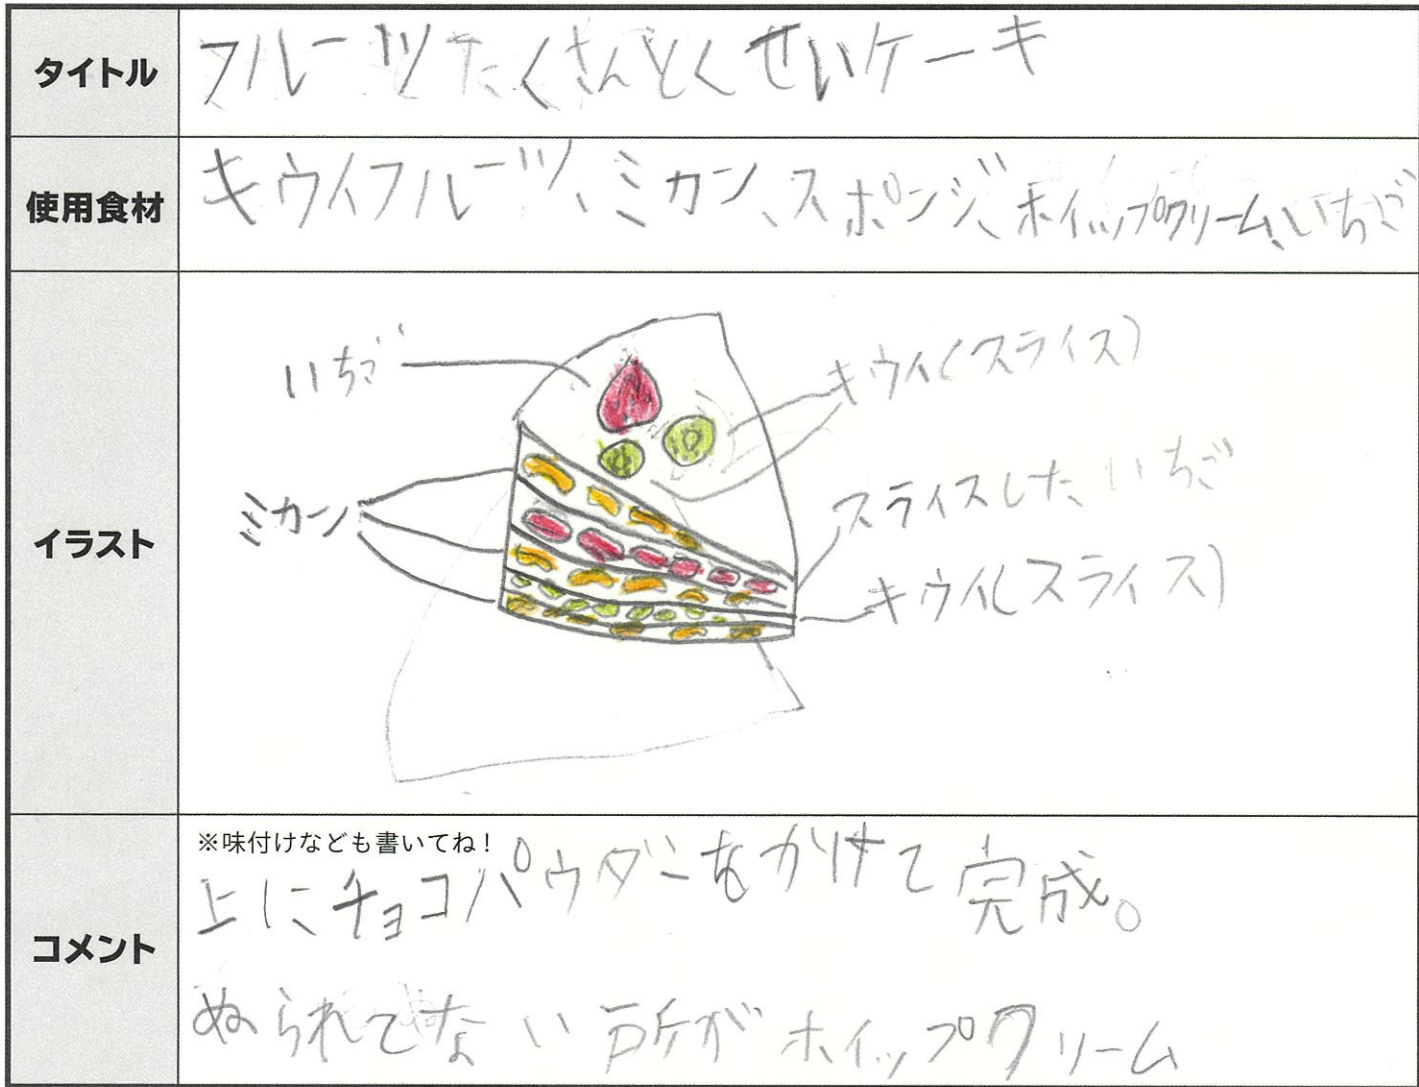 タイトル
フルーツたくさんとくせいケーキ
使用食材
キウイフルーツ、ミカン、スポンジ、ホイップクリーム、いちご
イラスト
いちご
キウイ(スライス)
ミカン
スライスした いちご
キウイ(スライス)
コメント
※味付けなども書いてね!
上にチョコパウダーをかけて完成。
ぬられてない所がホイップクリーム